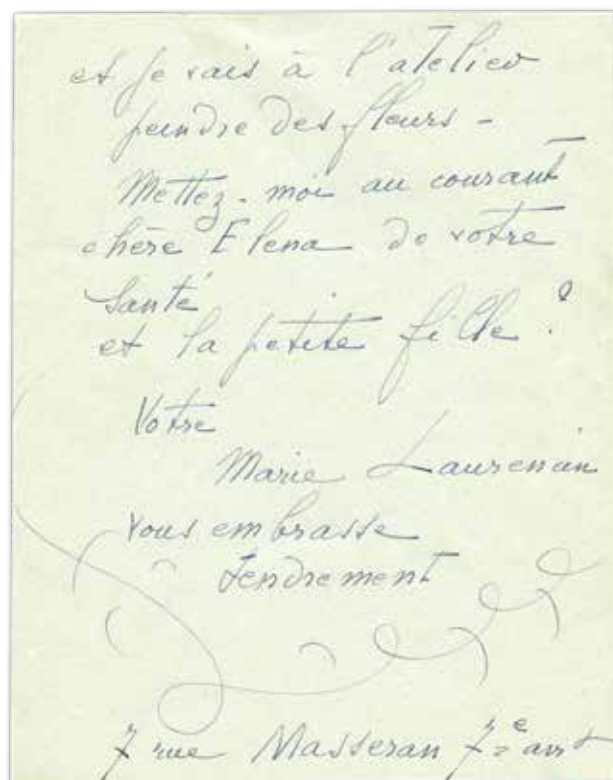 et je vais à l'atelier
peindre des fleurs -
Mettez-moi au courant
chère Elena de votre
santé
et la petite fille ?
Votre
Marie Laurencin
vous embrasse
tendrement
7 rue Masseran 7e arrt